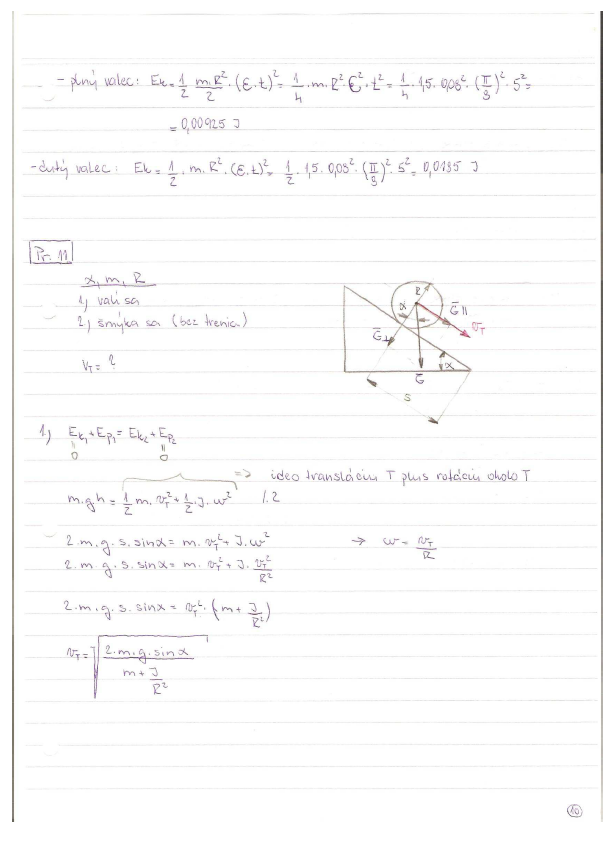 - plný valec: Ek = 1/2 m.R²/2 · (ε.t)² = 1/4 · m. R² · ε² · t² = 1/4 · 1,5 · 0,08² · (π/9)² · 5² =
= 0,00925 J
- dutý valec: Ek = 1/2 · m. R² · (ε.t)² = 1/2 · 1,5 · 0,08² · (π/9)² · 5² = 0,0185 J
Pr. 11
α, m, R
1) valí sa
2) šmýka sa (bez trenia)
v_T = ?
R
α
G̅∥
v_T
G̅⊥
G̅
α
s
1) Ek₁ + Ep₁ = Ek₂ + Ep₂
" "
0 0
=> ideo transláciu T plus rotáciu okolo T
m.g.h = 1/2 m. v_T² + 1/2 · J. ω² /.2
2.m.g.s.sinα = m. v_T² + J. ω² → ω = v_T/R
2.m.g.s.sinα = m. v_T² + J. v_T²/R²
2.m.g.s.sinα = v_T² · (m + J/R²)
v_T = √(2.m.g.sinα / (m + J/R²))
10